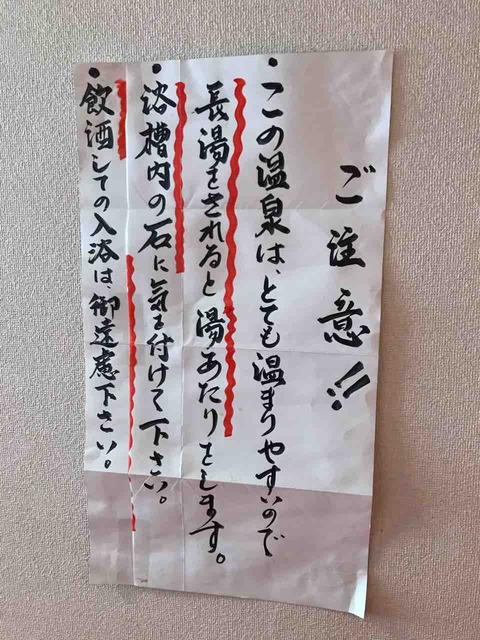 ご注意!!
・この温泉は、とても温まりやすいので
長湯をされると湯あたりをします。
・浴槽内の石に気を付けて下さい。
・飲酒しての入浴は、御遠慮下さい。